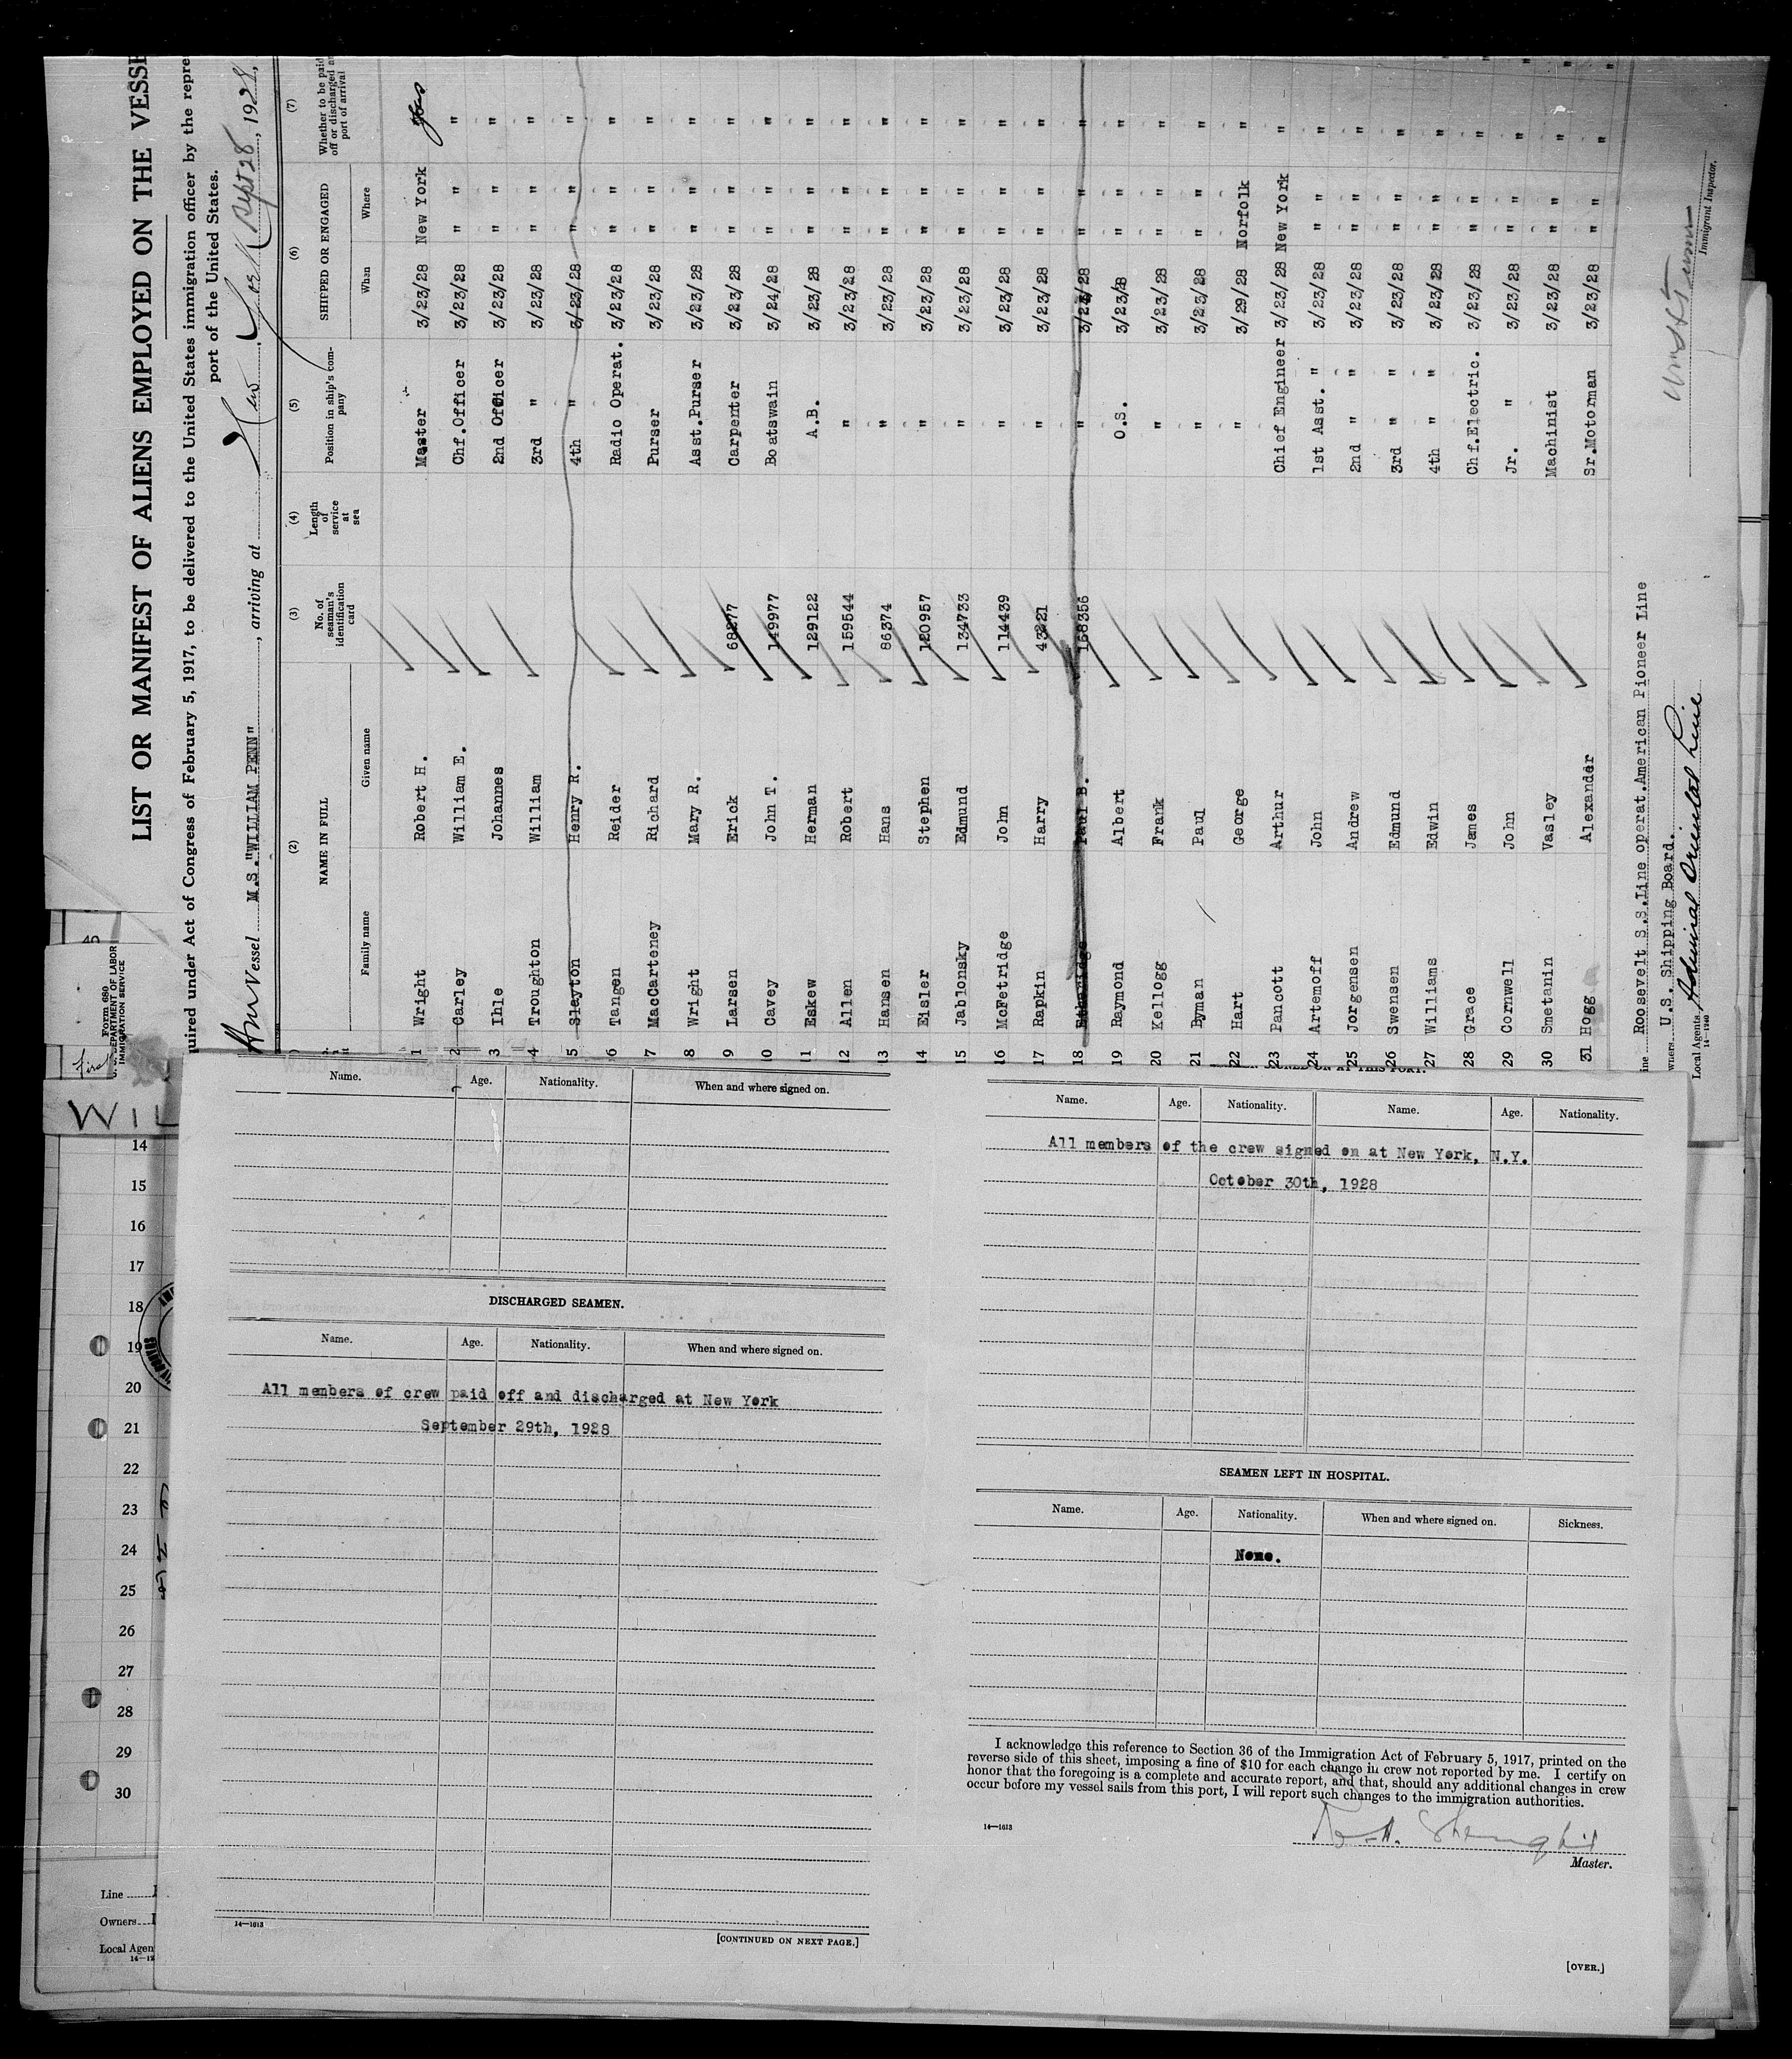 LIST OR MANIFEST OF ALIENS EMPLOYED ON THE VESSE
quired under Act of Congress of February 5, 1917, to be delivered to the United States immigration officer by the repre
port of the United States.
Vessel M.S."WILLIAM PENN", arriving at New York Sept 28, 1928,
(2) (3) (4) (5) (6) (7)
NAME IN FULL
Family name Given name
No. of seaman's identification card
Length of service at sea
Position in ship's company
SHIPPED OR ENGAGED
When Where
Whether to be paid off or discharged at port of arrival
1 Wright Robert H. Master 3/23/28 New York yes
2 Carley William E. Chf.Officer 3/23/28 " " "
3 Ihle Johannes 2nd Officer 3/23/28 " " "
4 Troughton William 3rd " 3/23/28 " " "
5 Slayton Henry R. 4th " 3/23/28 " " "
6 Tangen Reider Radio Operat. 3/23/28 " " "
7 MacCarteney Richard Purser 3/23/28 " " "
8 Wright Mary R. Asst.Purser 3/23/28 " " "
9 Larsen Erick 68277 Carpenter 3/23/28 " " "
10 Cavey John T. 149977 Boatswain 3/24/28 " " "
11 Eskew Herman 129122 A.B. 3/23/28 " " "
12 Allen Robert 159544 " 3/23/28 " " "
13 Hansen Hans 86374 " 3/23/28 " " "
14 Eisler Stephen 120957 " 3/23/28 " " "
15 Jablonsky Edmund 134733 " 3/23/28 " " "
16 McFetridge John 114439 " 3/23/28 " " "
17 Rapkin Harry 43221 " 3/23/28 " " "
18 Etheridge Paul B. 168356 " 3/23/28 " " "
19 Raymond Albert O.S. 3/23/28 " " "
20 Kellogg Frank " 3/23/28 " " "
21 Byman Paul " 3/23/28 " " "
22 Hart George " 3/29/28 Norfolk "
23 Pancott Arthur Chief Engineer 3/23/28 New York "
24 Artemoff John 1st Asst. " 3/23/28 " " "
25 Jorgensen Andrew 2nd " " 3/23/28 " " "
26 Swensen Edmund 3rd " " 3/23/28 " " "
27 Williams Edwin 4th " " 3/23/28 " " "
28 Grace James Chf.Electric. 3/23/28 " " "
29 Cornwell John Jr. " 3/23/28 " " "
30 Smetanin Vasley Machinist 3/23/28 " " "
31 Hogg Alexander Sr.Motorman 3/23/28 " " "
ine Roosevelt S.S.Line operat.American Pioneer Line
wners U.S. Shipping Board.
Local Agents Admiral Oriental Line
14—1240
Immigrant Inspector.
Form 680
U. S. DEPARTMENT OF LABOR
IMMIGRATION SERVICE
WIL
14
15
16
17
18
19
20
21
22
23
24
25
26
27
28
29
30
Line
Owners
Local Agen
Name. Age. Nationality. When and where signed on.
DISCHARGED SEAMEN.
Name. Age. Nationality. When and where signed on.
All members of crew paid off and discharged at New York
September 29th, 1928
14—1613
[CONTINUED ON NEXT PAGE.]
Name. Age. Nationality. Name. Age. Nationality.
All members of the crew signed on at New York, N.Y.
October 30th, 1928
SEAMEN LEFT IN HOSPITAL.
Name. Age. Nationality. When and where signed on. Sickness.
None.
I acknowledge this reference to Section 36 of the Immigration Act of February 5, 1917, printed on the
reverse side of this sheet, imposing a fine of $10 for each change in crew not reported by me. I certify on
honor that the foregoing is a complete and accurate report, and that, should any additional changes in crew
occur before my vessel sails from this port, I will report such changes to the immigration authorities.
14—1613
Master.
[OVER.]